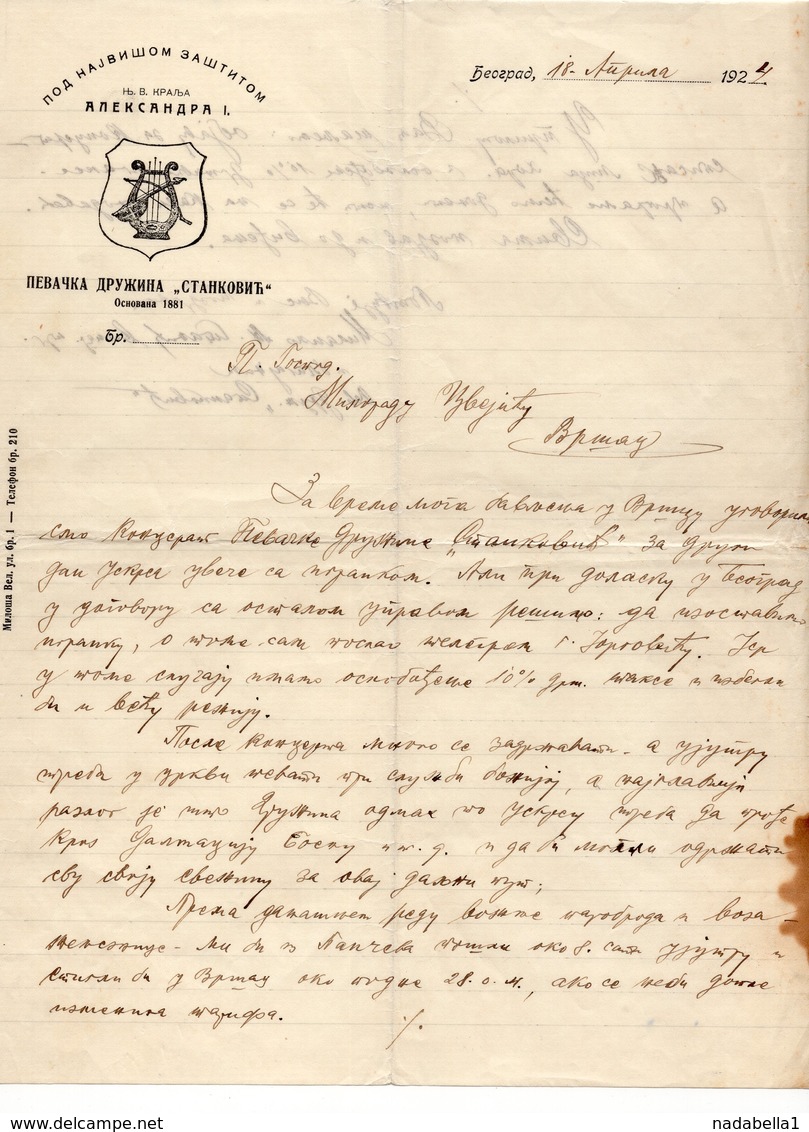 ПОД НАЈВИШОМ ЗАШТИТОМ
Њ. В. КРАЉА
АЛЕКСАНДРА I.
Београд, 18. Априла 1924
ПЕВАЧКА ДРУЖИНА „СТАНКОВИЋ“
Основана 1881
Бр.
П. Господ.
Милораду Цвејићу
Вршац
Милоша Вел. ул. бр. 1 — Телефон бр. 210
За време мога бављења у Вршцу уговорили
смо концерат Певачке Дружине „Станковић“ за други
дан ускрса увече са игранком. Али при доласку у Београд
у договору са осталом управом решисмо: да изоставимо
игранку, о томе сам послао г. Јер
у томе случају имамо ослобођење 10% држ. таксе и избегли
би и већу режију.
После концерта много се задржавати - а ујутру
треба у цркви певати при служби божијој, а најглавнији
разлог је што Дружина одмах по Ускрсу треба да прође
кроз Далмацију Босну и т. д. и да би могли одржати
сву своју свежину за овај даљни пут;
Према данашњем реду вожње пароброда и воза
железнице - ми би из Панчева пошли око 8. сати ујутру и
стигли би у Вршац око подне 28. о. м., ако се неби дотле
изменила тарифа.
./.
nadabella1
delcampe.net